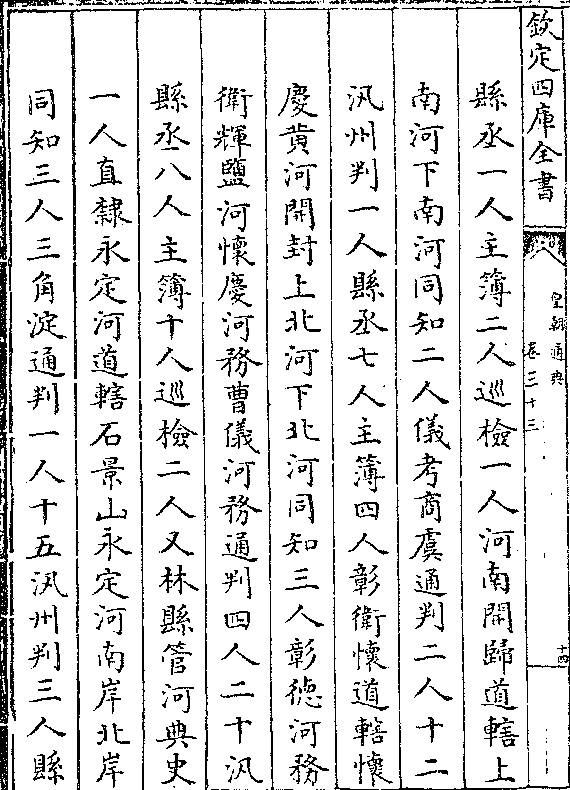 欽定四庫全書
皇朝通典
卷三十三
十四
縣丞一人主簿二人巡檢一人河南開歸道轄上
南河下南河同知二人儀考商虞通判二人十二
汛州判一人縣丞七人主簿四人彰衛懷道轄懷
慶黄河開封上北河下北河同知三人彰德河務
衛輝鹽河懷慶河務曹儀河務通判四人二十汛
縣丞八人主簿十人巡檢二人又林縣管河典史
一人直隸永定河道轄石景山永定河南岸北岸
同知三人三角淀通判一人十五汛州判三人縣